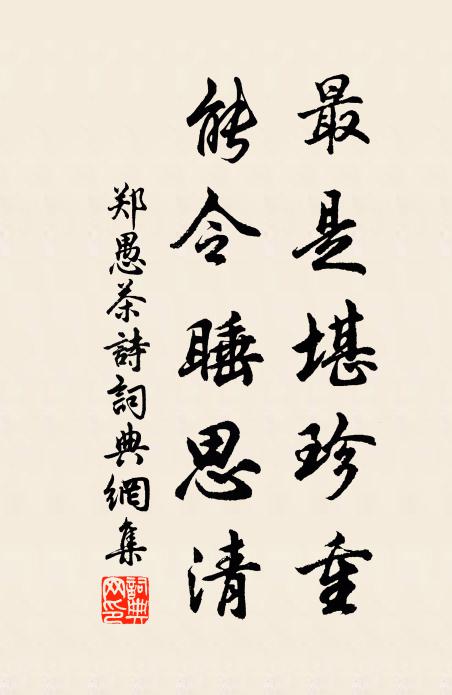 最是堪珍重
能令睡思清
郑愚茶詩詞典網集
詞典網印